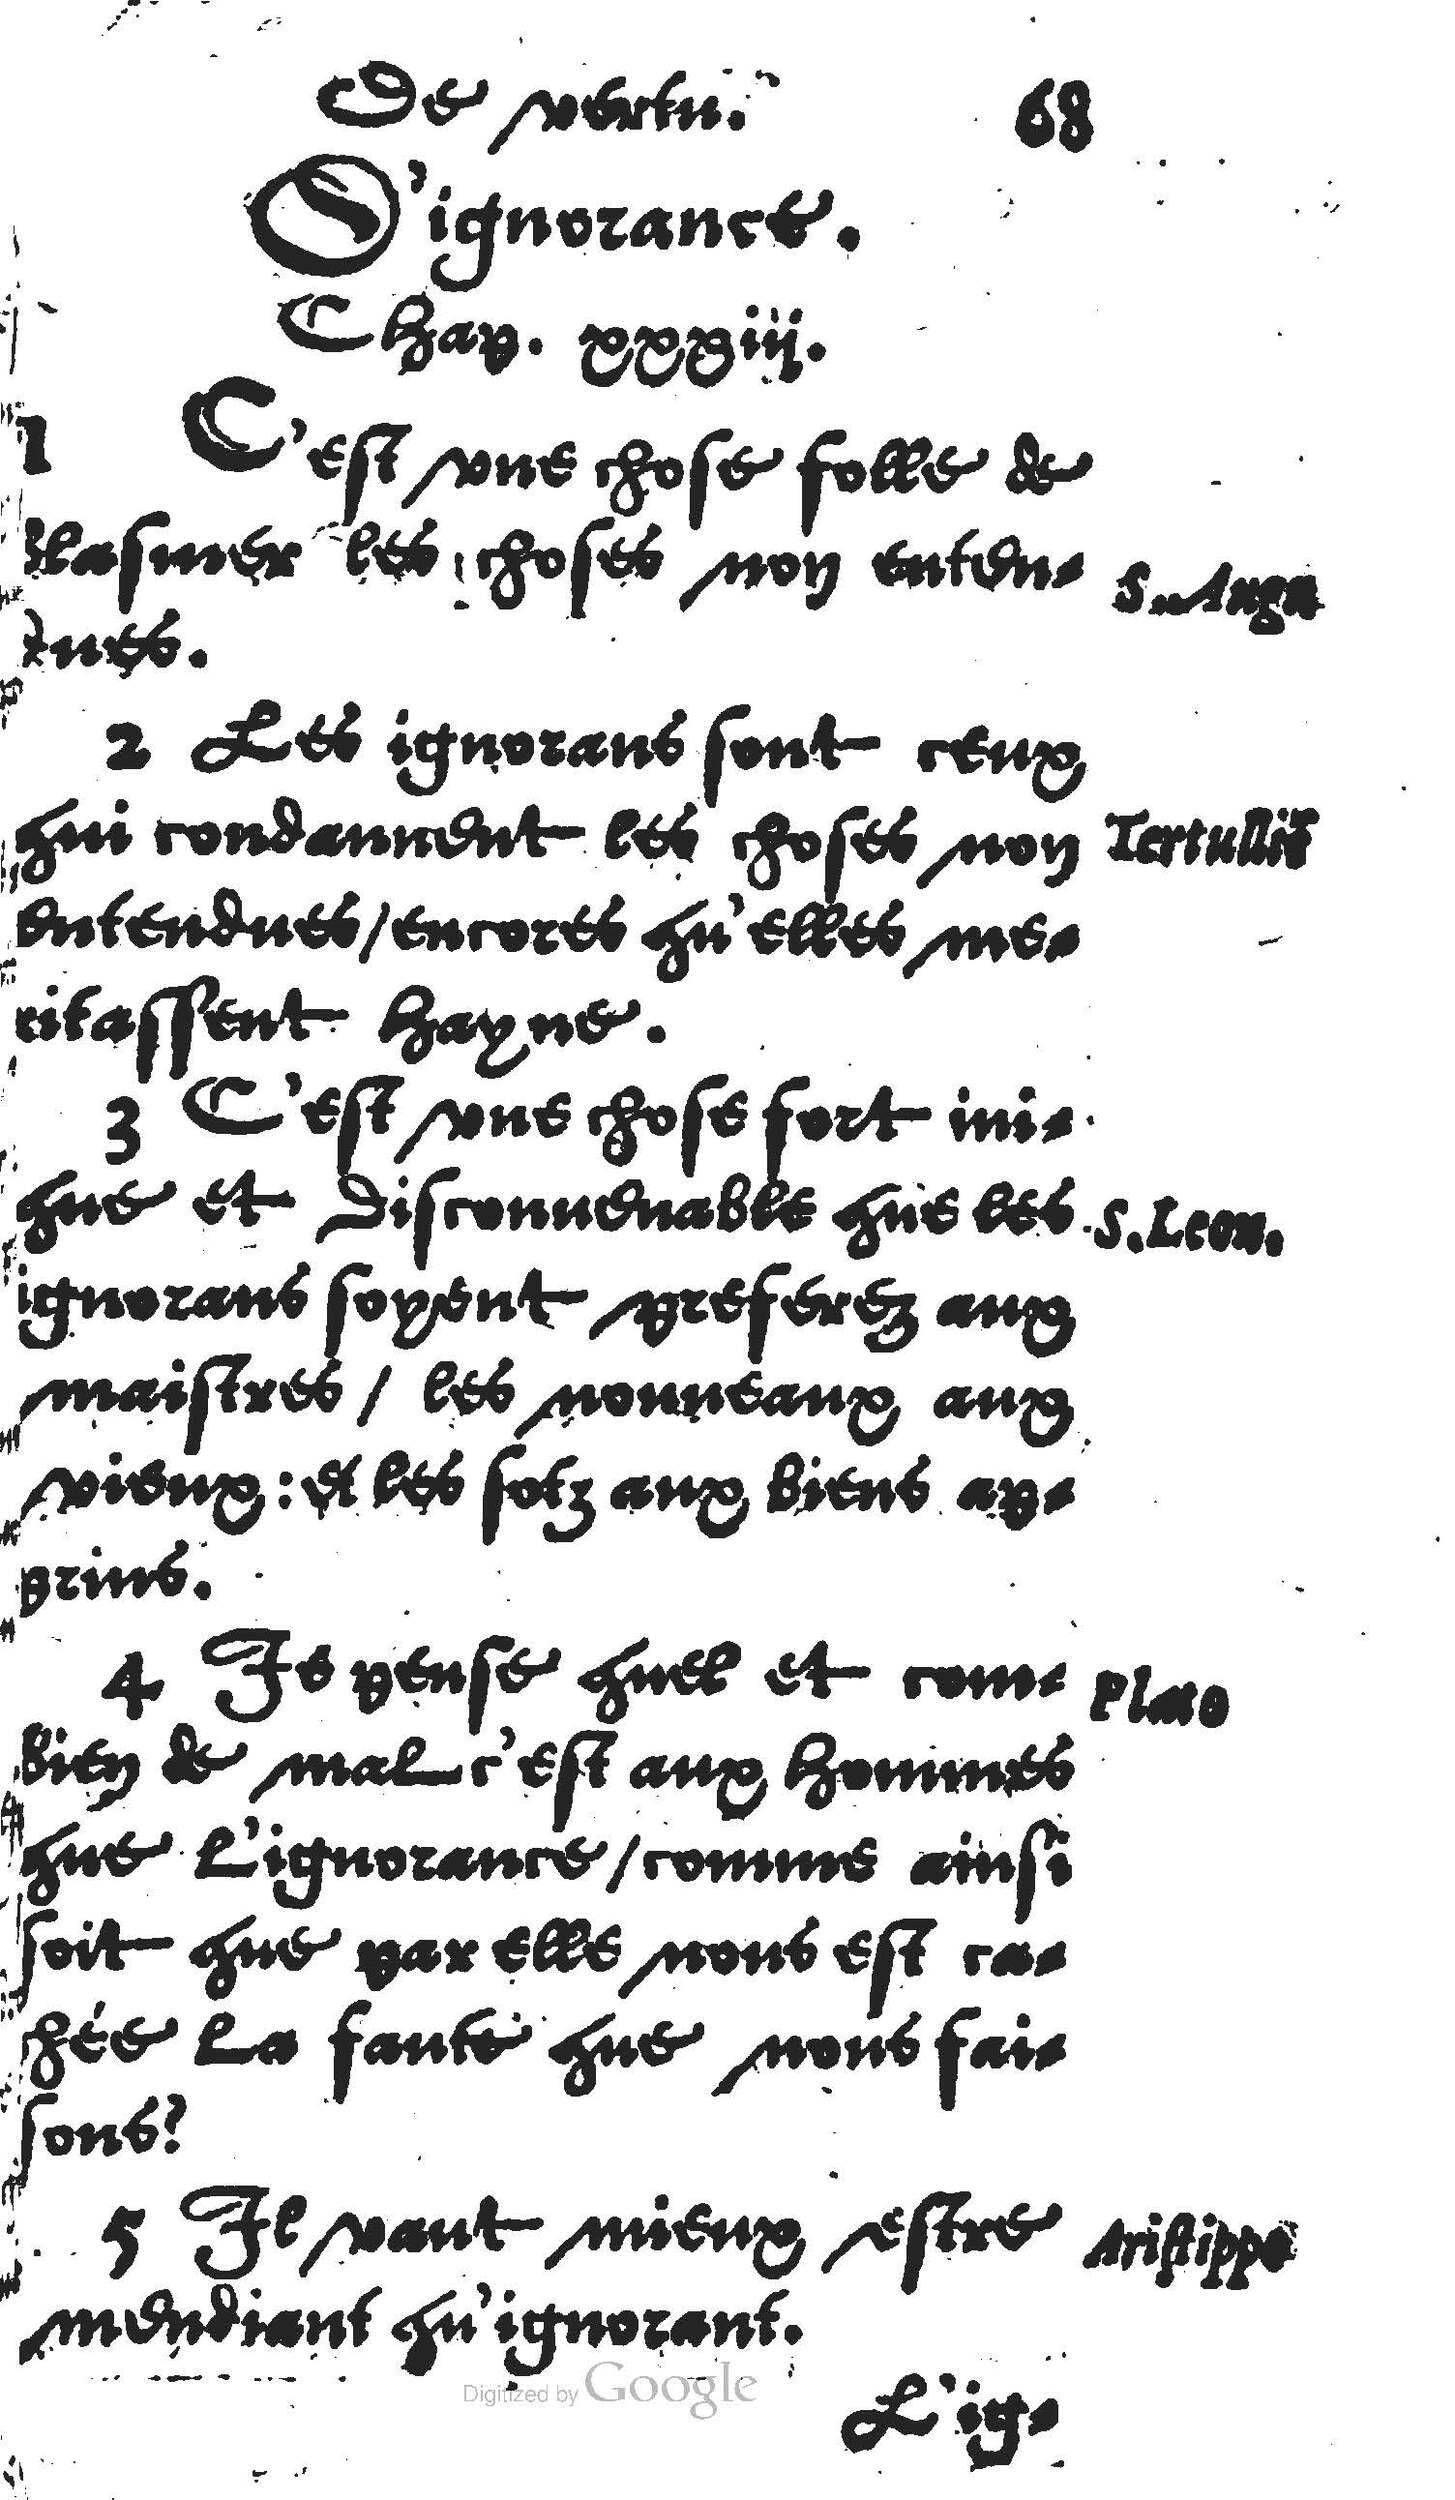 De vertu. 68
D'ignorance.
Chap. xxxiij.
1 C'est vne chose folle de
blasmer les choses non enten-
dues. S. Augu
2 Les ignorans sont ceux
qui condamnent les choses non Tertulliē
entendues/encores qu'elles me-
ritassent hayne.
3 C'est vne chose fort ini-
que et disconuenable que les S. Leon.
ignorans soyent preferez aux
maistres / les nouueaux aux
vieux: et les sotz aux biens ap-
prins.
4 Je pense quel et com- Plato
bien de mal c'est aux hommes
que l'ignorance/comme ainsi
soit que par elle nous est ca-
chée la faute que nous fai-
sons?
5 Il vaut mieux estre Aristippe
mendiant qu'ignorant.
Digitized by Google
L'ig-